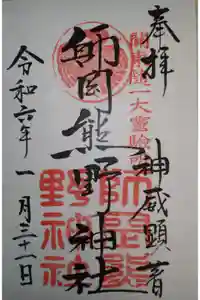 奉拝
神威顕著
関東随一大霊験所
師岡熊野神社
師岡熊野神社
令和六年
一月三十一日